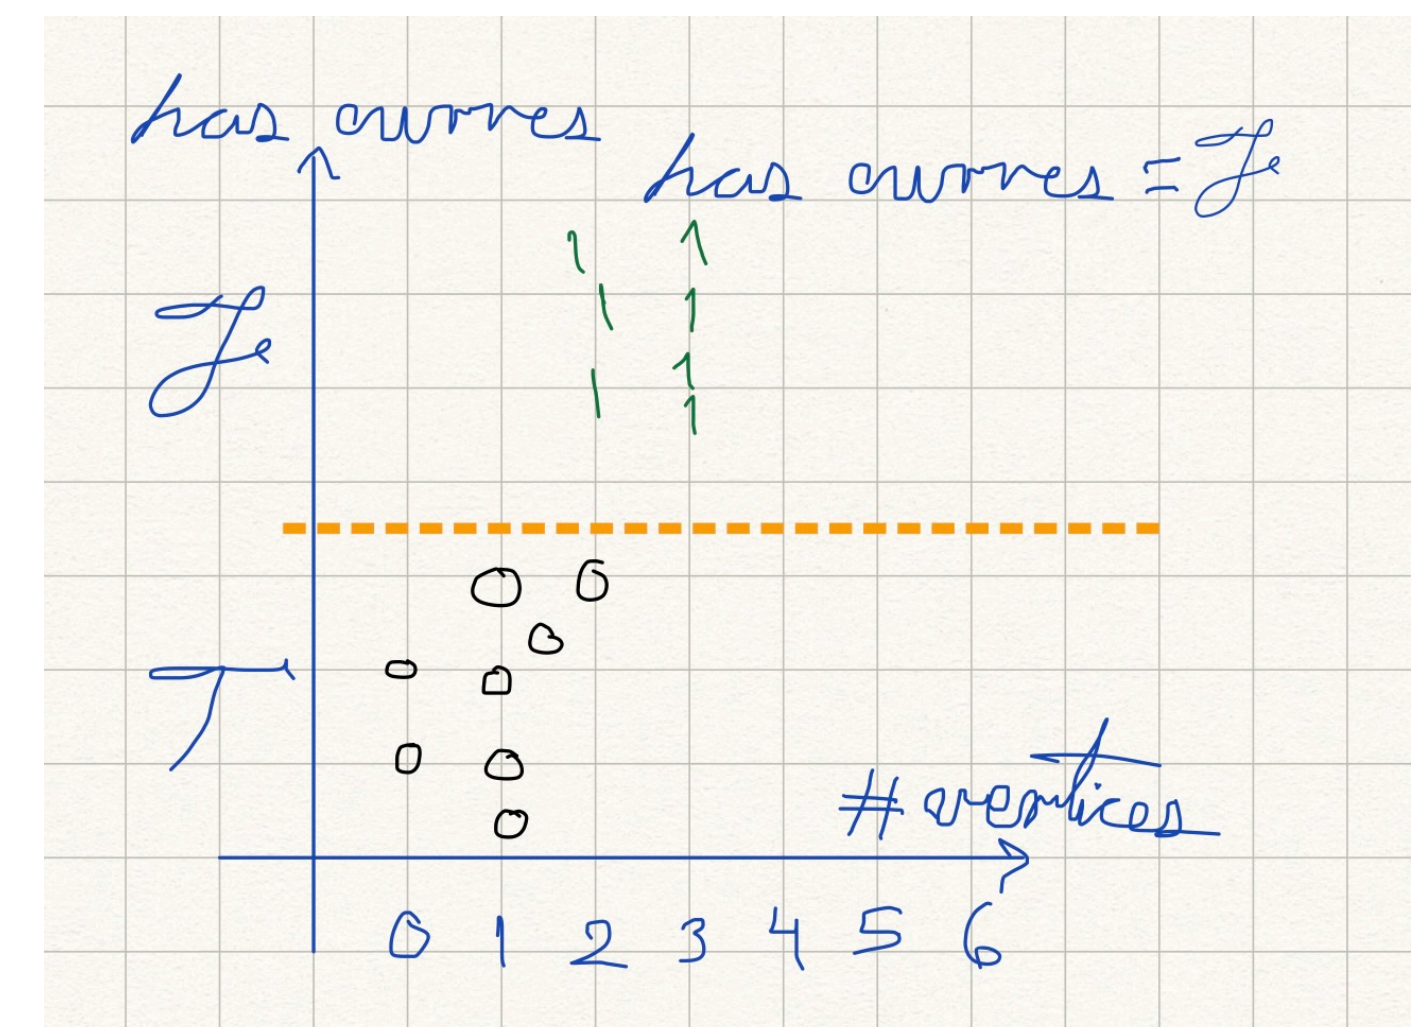 has curves
has curves = F
1 1
1 1
F
1 1
1
0 0
0
0 0
T
0 0
0
# vertices
0 1 2 3 4 5 6